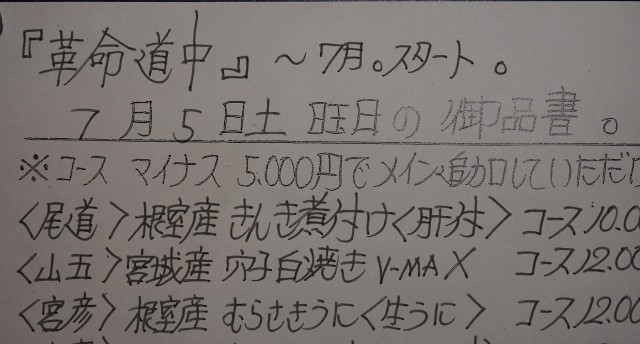 『革命道中』～7月。スタート。
7月5日土曜日の御品書。
※コース マイナス 5.000円でメイン追加していただけ
〈尾道〉根室産 きんき煮付け〈肝付〉 コース10.00
〈山五〉宮城産 穴子白焼き V-MAX コース12.00
〈宮彦〉根室産 むらさきうに〈生うに〉 コース12.00